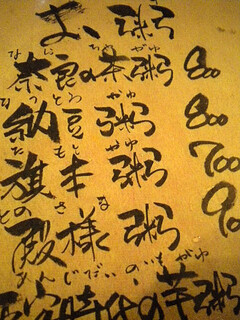 お粥
奈良の茶粥 800
なっとうがゆ
納豆粥 800
はたもとがゆ
旗本粥 700
とのさま
殿様粥 90
あんじだいのいもがゆ
安時代の芋粥